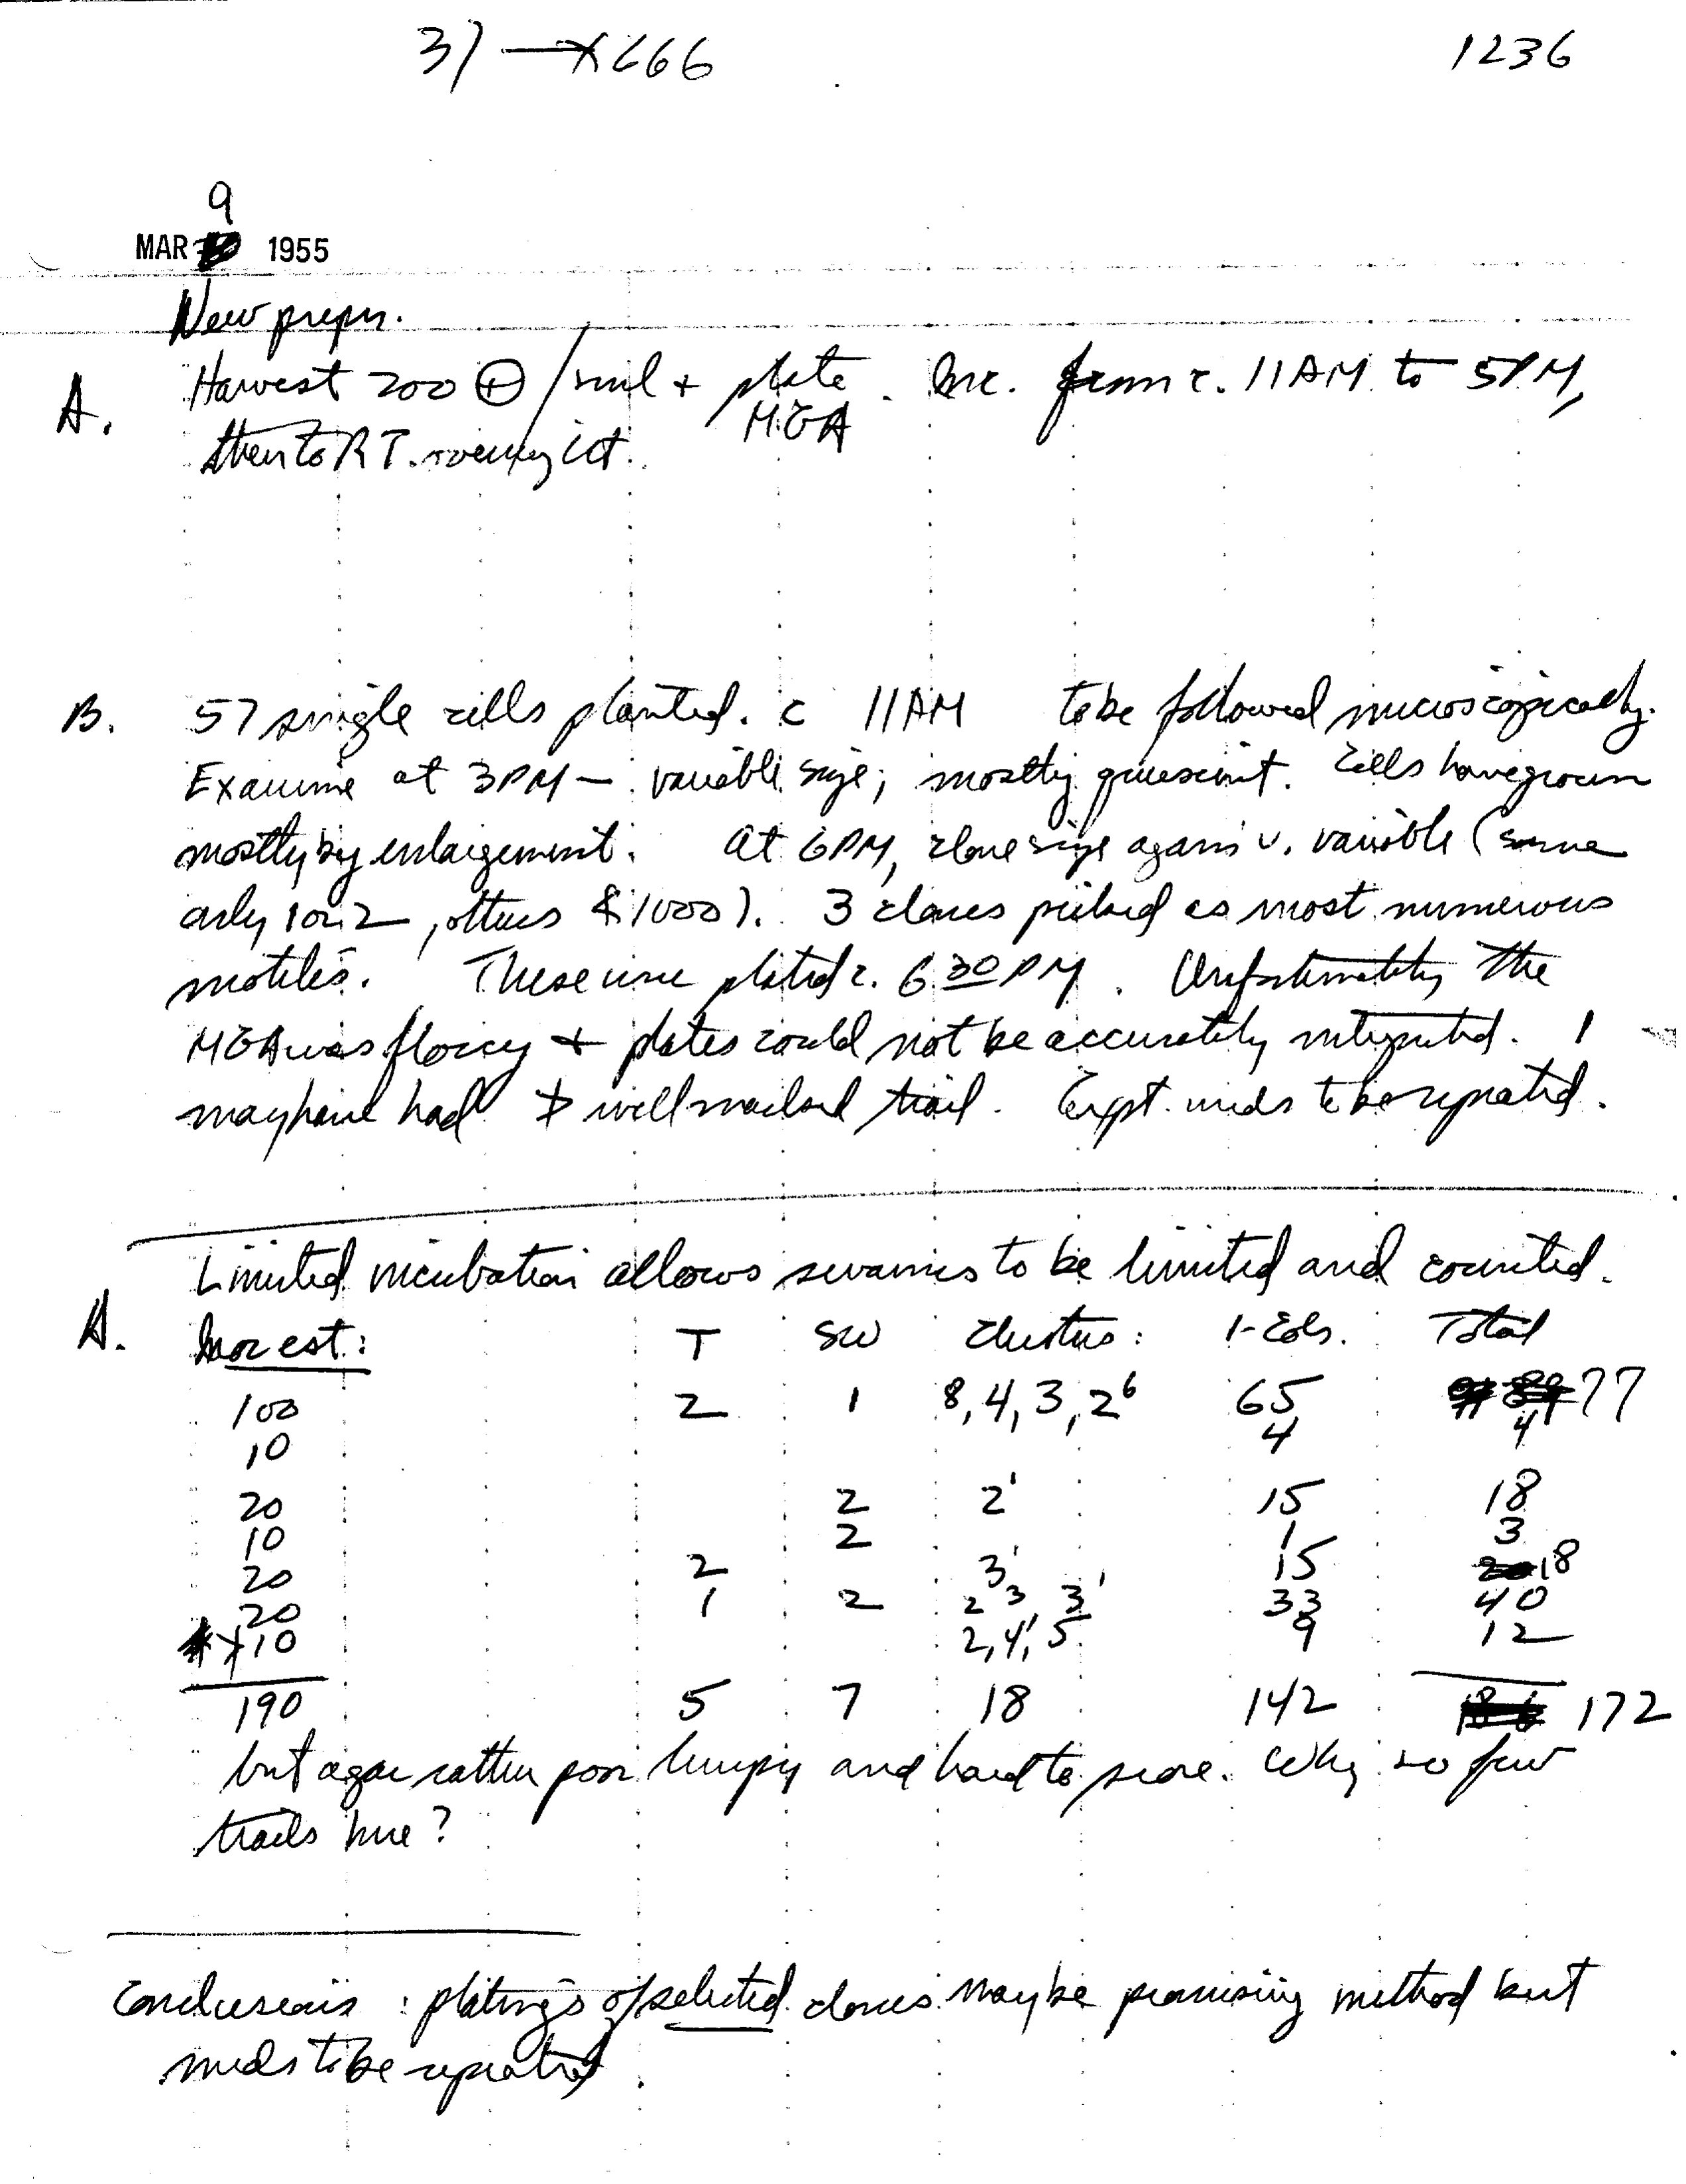 3) —x 666 1236
9
MAR 1955
New prepn.
A. Harvest 200 ⊕ / ml + plate. Inc. from c. 11AM to 5PM,
MGA
then to RT. overnight.
B. 57 single cells planted. c 11AM to be followed microscopically.
Examine at 3PM — variable size; mostly quiescent. Cells have grown
mostly by enlargement. At 6PM, clone size again v. variable (some
only 1 or 2, others 1000). 3 clones picked as most numerous
motiles. These were plated c. 6 30 PM. Unfortunately the
MGA was floccy + plates could not be accurately interpreted. 1
may have had well marked trail. Expt. needs to be repeated.
Limited incubation allows swarms to be limited and counted.
A. Inoc est: T SW Clusters: 1-Cols. Total
100 2 1 8, 4, 3, 2⁶ 65 77
10 4 4
20 2 2' 15 18
10 2 1 3
20 2 3' 15 18
20 1 2 2³ 3' 33 40
10 2, 4,' 5 9 12
190 5 7 18 142 172
but agar rather poor lumpy and hard to score. Why so few
trails here?
Conclusions: platings of selected clones may be promising method but
needs to be repeated.